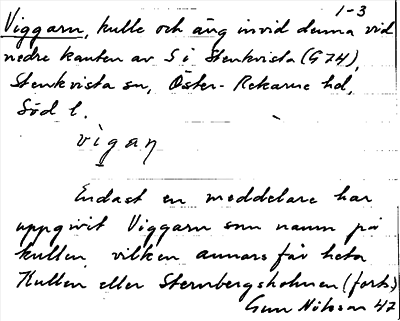 1-3
Viggarn, kulle och äng invid denna vid
nedre kanten av S i Stenkvista (G74),
Stenkvista sn, Öster-Rekarne hd,
Söd l.
vigaɳ
Endast en meddelare har
uppgivit Viggarn som namn på
kullen vilken annars får heta
Kullen eller Sternbergsholmen (forts.)
Gun Nilsson 47